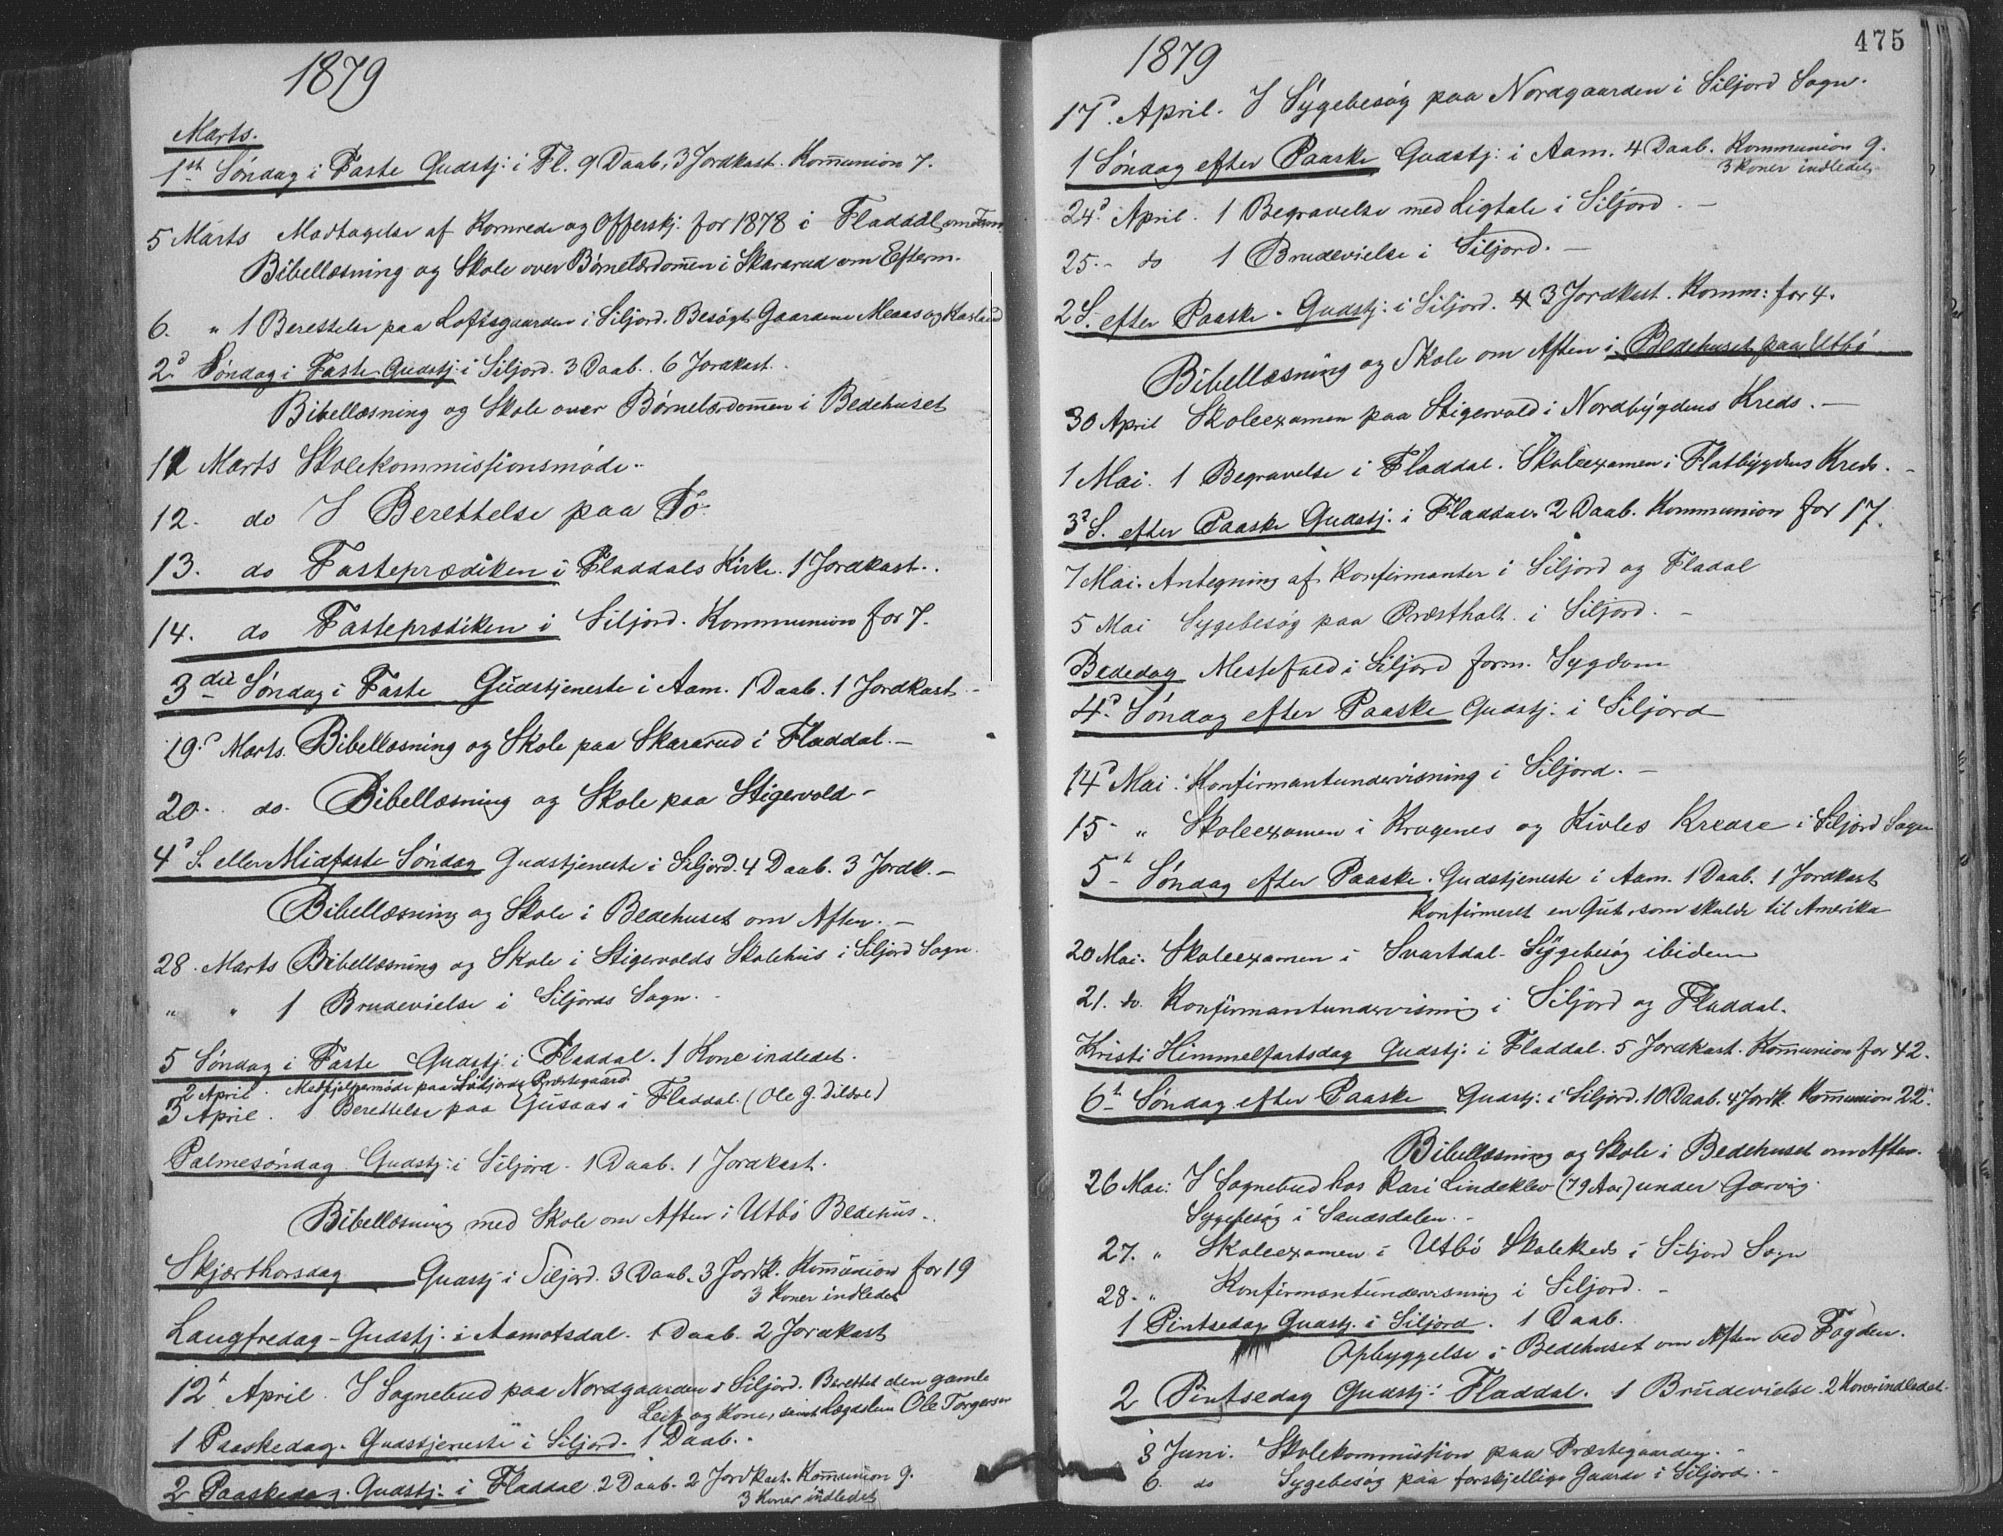 1879
Marts.
1ste Søndag i Faste Gudstj: i Fl. 9 Daab, 3 Jordkast. Kommunion 7.
5 Marts Modtagelse af Kornrede og Offerskj: for 1878 i Fladdal om
Bibellæsning og Skole over Børnelærdommen i Skararud om Efterm.
6. " 1 Berettelse paa Loftsgaarden i Siljord. Besøgt Gaardene Meaas og
2d Søndag i Faste Gudstj: i Siljord. 3 Daab. 6 Jordkast.
Bibellæsning og Skole over Børnelærdommen i Bedehuset
11 Marts Skolekommissionsmøde.
12. do I Berettelse paa Tø.
13. do Fasteprædiken i Fladdals Kirke. 1 Jordkast.
14. do Fasteprædiken i Siljord. Kommunion for 7.
3die Søndag i Faste Gudstjeneste i Aam. 1 Daab. 1 Jordkast.
19d Marts. Bibellæsning og Skole paa Skararud i Fladdal.
20. do. Bibellæsning og Skole paa Stigervold
4d S. eller Midfaste Søndag Gudstjeneste i Siljord. 4 Daab. 3 Jordk.
Bibellæsning og Skole i Bedehuset om Aften.
28. Marts Bibellæsning og Skole i Stigervolds Skolehus i Siljord Sogn.
" " 1 Brudevielse i Siljords Sogn.
5 Søndag i Faste Gudstj: i Fladdal. 1 Kone indledet.
2 April. Medhjelpermøde paa Siljords Præstegaard
3 April. 1 Berettelse paa i Fladdal. (Ole G. )
Palmesøndag Gudstj: i Siljord. 1 Daab. 1 Jordkast.
Bibellæsning med Skole om Aften i Utbø Bedehus.
Skjærthorsdag Gudstj: i Siljord. 3 Daab. 3 Jordk. Kommunion for 19
3 Koner indledet
Langfredag - Gudstj: i Aamotsdal. 1 Daab. 2 Jordkast
12t April. I Sognebud paa Nordgaarden i Siljord. Berettet den gamle
Leif og Kone, samt Lægdslem Ole Torgersen
1 Paaskedag. Gudstjeneste i Siljord. 1 Daab.
2 Paaskedag. Gudstj: i Fladdal 2 Daab. 2 Jordkast. Kommunion 9.
3 Koner indledet
475
1879
17d April. I Sygebesøg paa Nordgaarden i Siljord Sogn.
1 Søndag efter Paaske Gudstj: i Aam. 4 Daab. Kommunion 9.
3 Koner indledet
24d April. 1 Begravelse med Ligtale i Siljord.
25. do 1 Brudevielse i Siljord.
2 S. efter Paaske. Gudstj: i Siljord. 3 Jordkast. Komm: for 4.
Bibellæsning og Skole om Aften i Bedehuset paa Utbø
30 April Skoleexamen paa Stigervold i Nordbygdens Kreds.
1 Mai. 1 Begravelse i Fladdal. Skoleexamen i Flatbygdens Kreds.
3d S. efter Paaske Gudstj: i Fladdal 2 Daab. Kommunion for 17.
7 Mai. Antegning af Konfirmanter i Siljord og Fladal
5 Mai Sygebesøg paa Præstholt i Siljord.
Bededag Messefald i Siljord form. Sygdom
4d Søndag efter Paaske Gudstj: i Siljord
14d Mai: Konfirmantundervisning i Siljord.
15 " Skoleexamen i Kragenes og Kivles Kredse i Siljord Sogn
5t Søndag efter Paaske. Gudstjeneste i Aam. 1 Daab. 1 Jordkast
Konfirmeret en Gut, som skulde til Amerika
20 Mai. Skoleexamen i Svartdal. Sygebesøg ibidem
21. do. Konfirmantundervisning i Siljord og Fladdal.
Kristi Himmelfartsdag Gudstj: i Fladdal. 5 Jordkast. Kommunion for 42.
6t Søndag efter Paaske Gudstj: i Siljord. 10 Daab. 4 Jordk. Kommunion 22.
Bibellæsning og Skole i Bedehuset om Aften.
26 Mai. I Sognebud hos Kari Lindeklev (79 Aar) under Garvig.
Sygebesøg i Sandsdalen.
27. " Skoleexamen i Utbø Skolekreds i Siljord Sogn
28. " Konfirmantundervisning i Siljord.
1 Pintsedag Gudstj. i Siljord. 1 Daab.
Opbyggelse i Bedehuset om Aften ved Fogden.
2 Pintsedag Gudstj: Fladdal. 1 Brudevielse 2 Koner indledet.
3 Juni. Skolekommission paa Præstegaarden.
6. do Sygebesøg paa forskjellige Gaarde i Siljord.